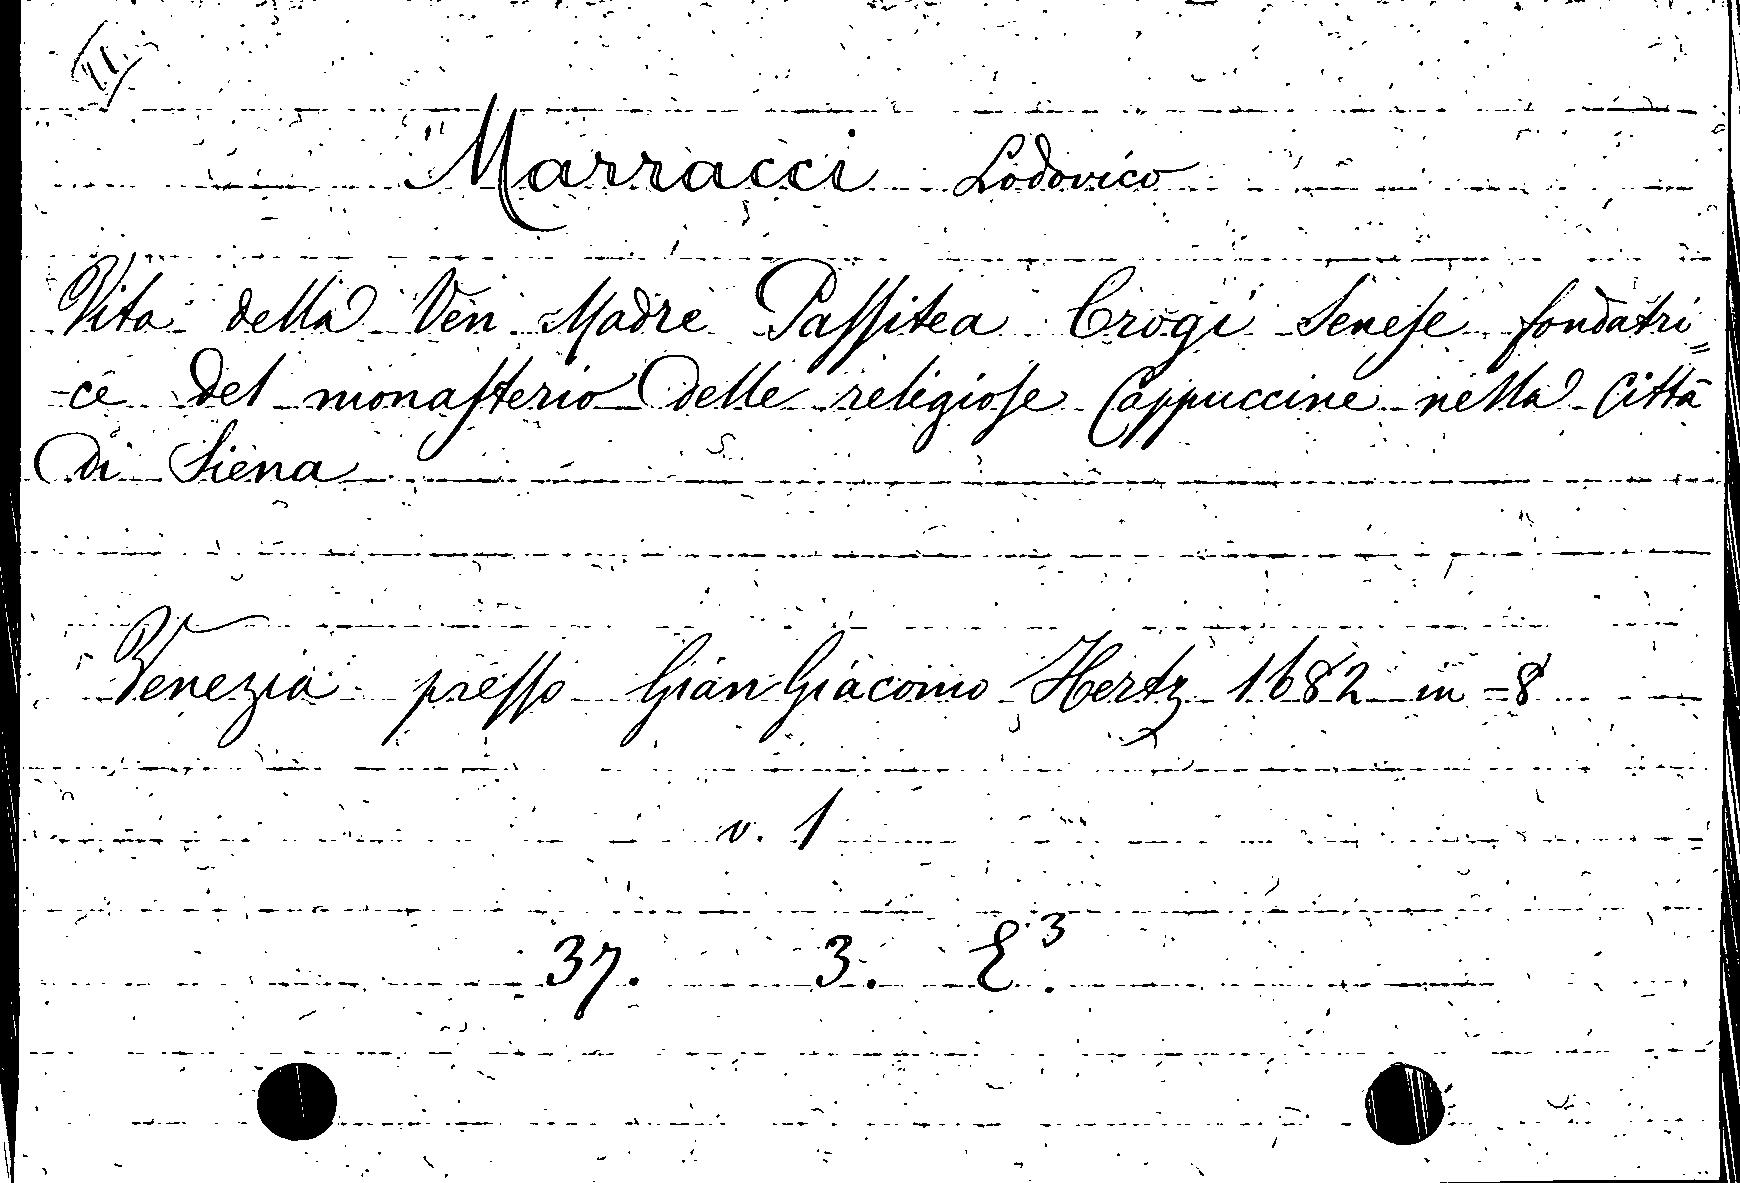 Marracci Lodovico
Vita della Ven Madre Passitea Crogi Senese fondatri=
-ce del monasterio delle religiose Cappuccine nella Città
di Siena
Venezia presso Gian Giacomo Hertz 1682 in -8
v. 1
37. 3. E³.